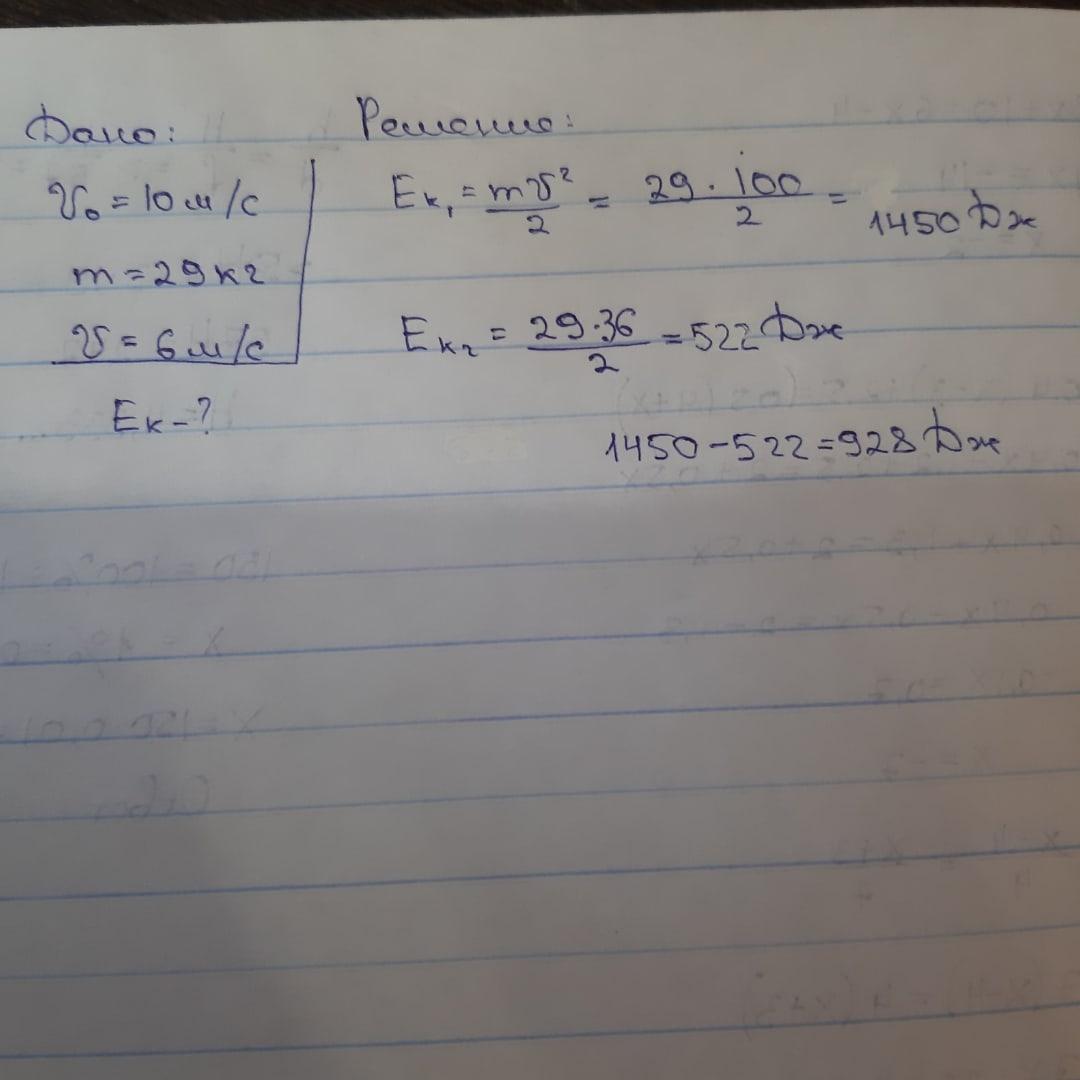 Дано:
V₀ = 10 м/с
m = 29 кг
V = 6 м/с
Eк - ?
Решение:
Eк₁ = mV²/2 = 29 · 100/2 = 1450 Дж
Eк₂ = 29·36/2 = 522 Дж
1450 - 522 = 928 Дж